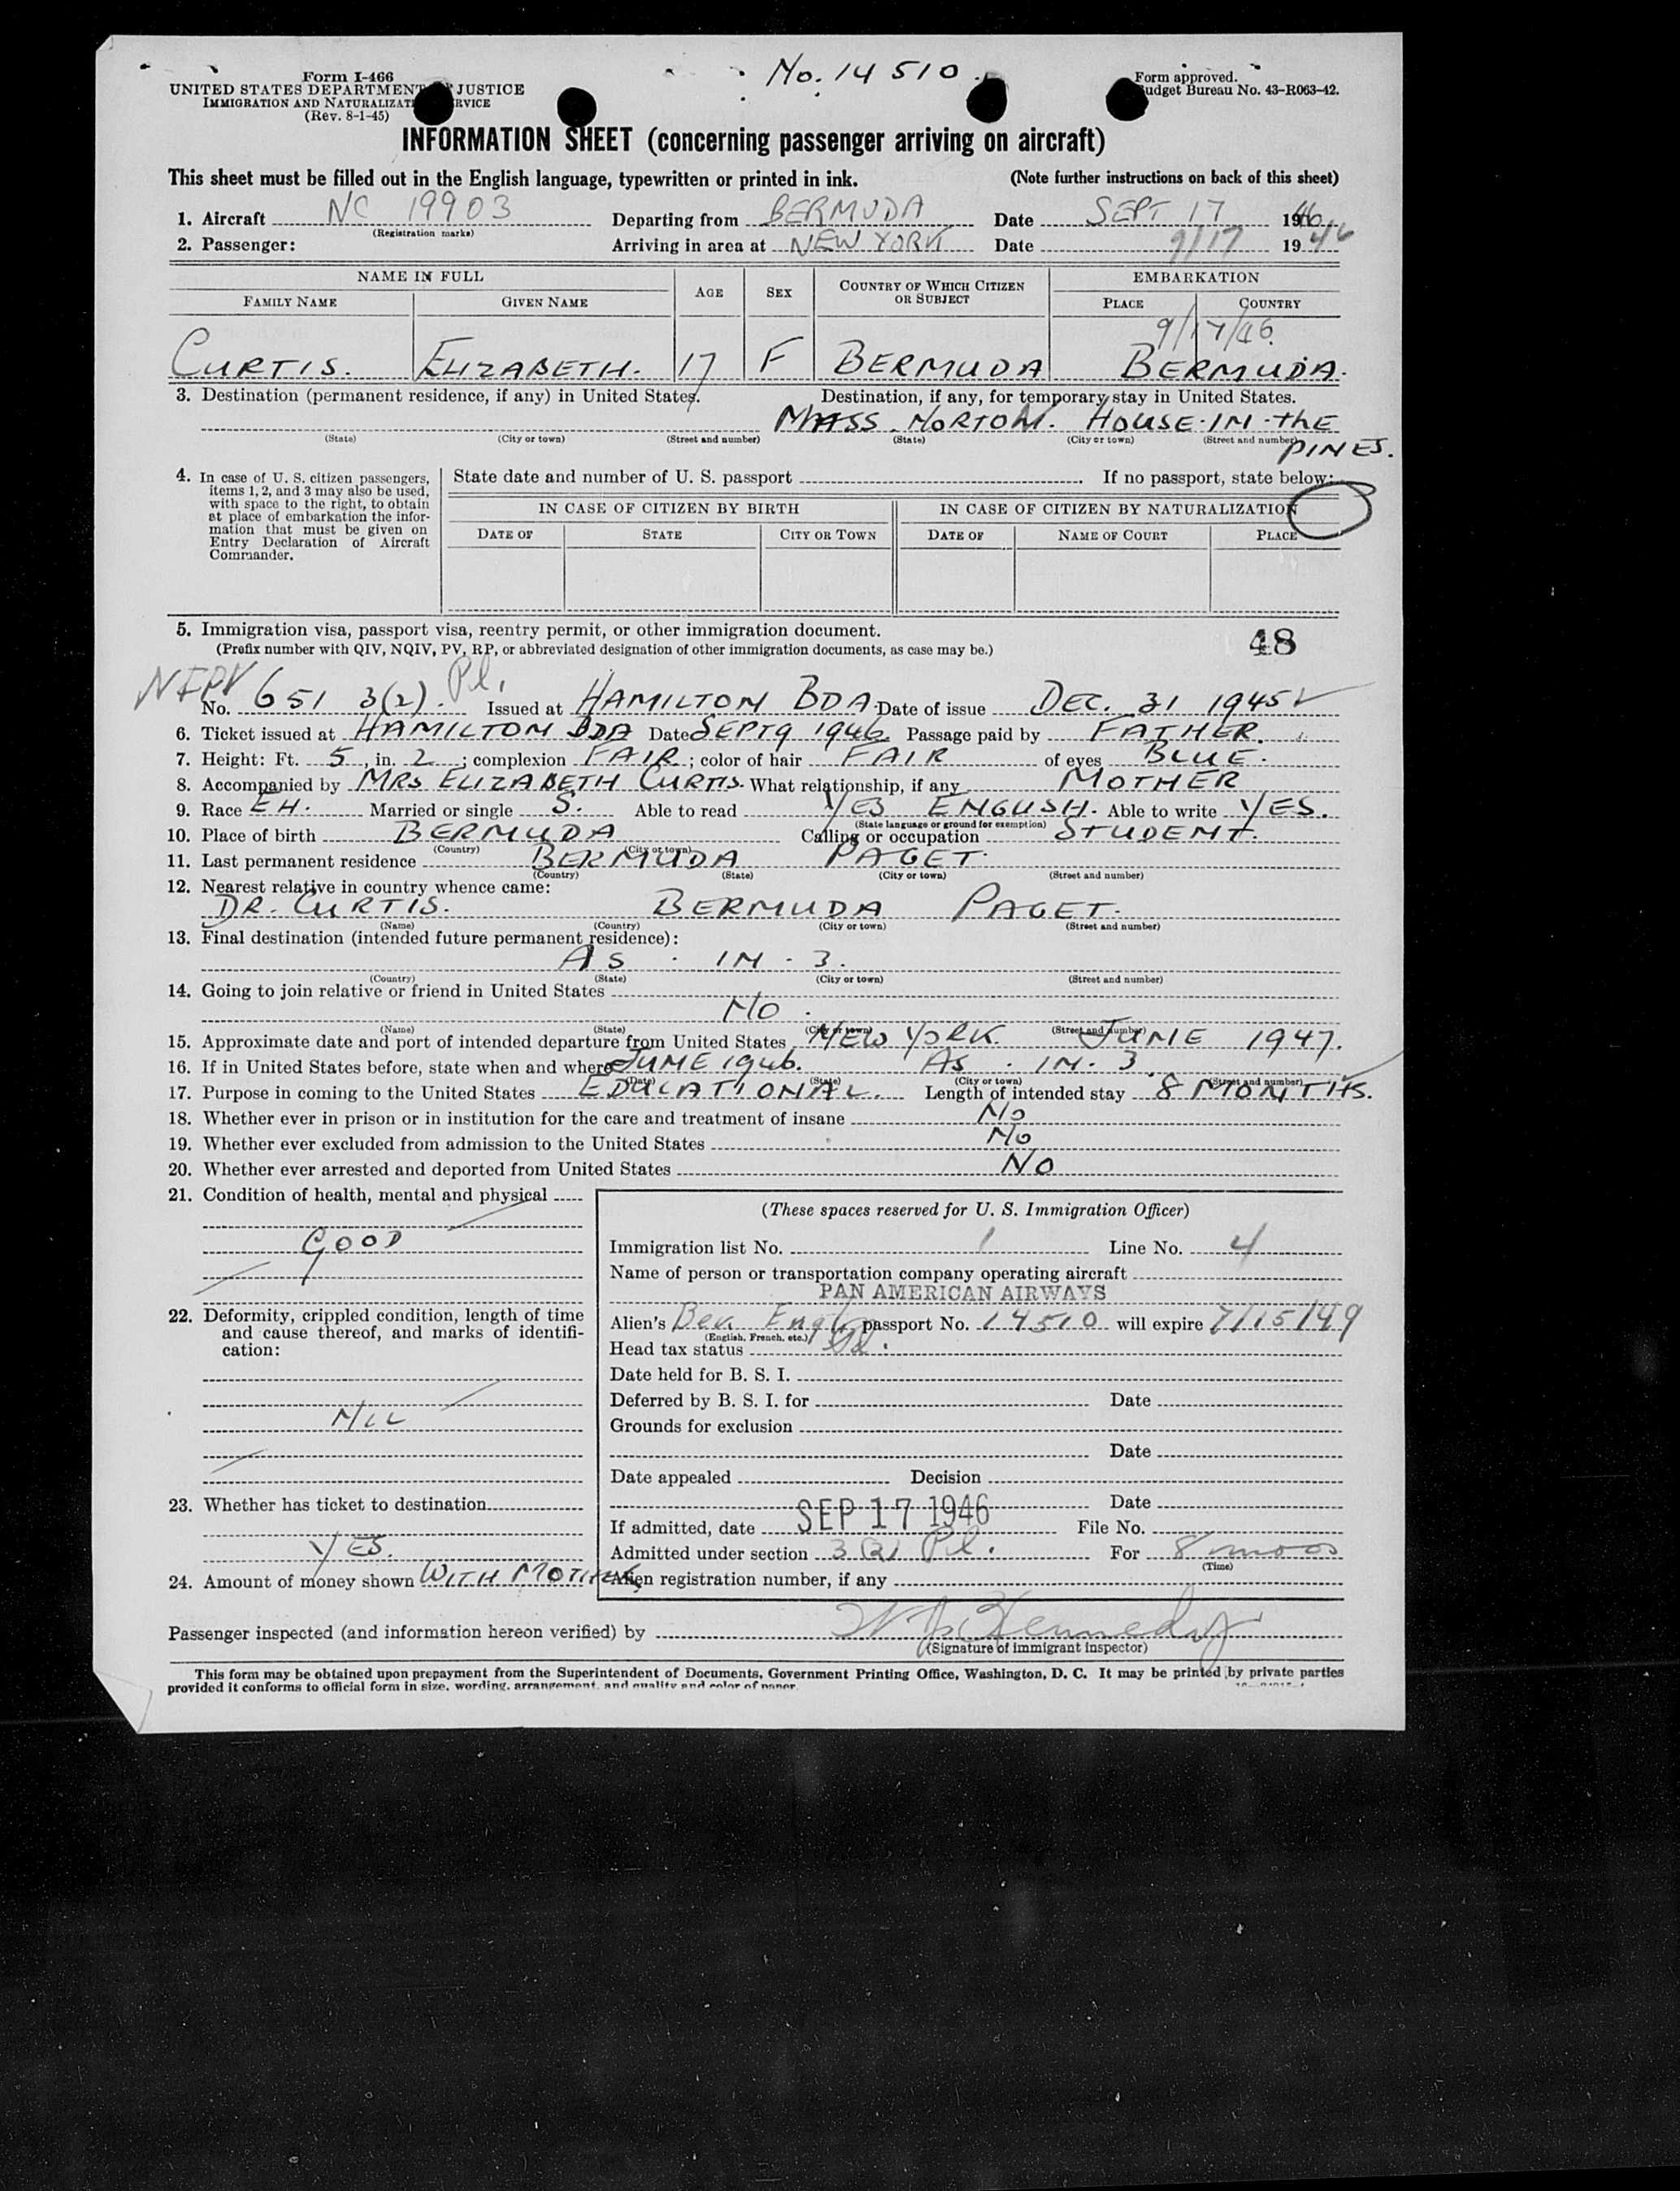 No. 14510
Form I-466
UNITED STATES DEPARTMENT JUSTICE
IMMIGRATION AND NATURALIZATI RVICE
(Rev. 8-1-45)
Form approved.
udget Bureau No. 43-R063-42.
INFORMATION SHEET (concerning passenger arriving on aircraft)
This sheet must be filled out in the English language, typewritten or printed in ink. (Note further instructions on back of this sheet)
1. Aircraft NC 19903 Departing from BERMUDA Date SEPT 17 1946
(Registration marks)
2. Passenger: Arriving in area at NEW YORK Date 9/17 1946
NAME IN FULL AGE SEX COUNTRY OF WHICH CITIZEN OR SUBJECT EMBARKATION
FAMILY NAME GIVEN NAME PLACE COUNTRY
9/17/46
CURTIS. ELIZABETH. 17 F BERMUDA BERMUDA.
3. Destination (permanent residence, if any) in United States. Destination, if any, for temporary stay in United States.
MASS. NORTON. HOUSE-IN-thE PINES.
(State) (City or town) (Street and number) (State) (City or town) (Street and number)
4. In case of U. S. citizen passengers, items 1, 2, and 3 may also be used, with space to the right, to obtain at place of embarkation the information that must be given on Entry Declaration of Aircraft Commander.
State date and number of U. S. passport . If no passport, state below:
IN CASE OF CITIZEN BY BIRTH IN CASE OF CITIZEN BY NATURALIZATION
DATE OF STATE CITY OR TOWN DATE OF NAME OF COURT PLACE
5. Immigration visa, passport visa, reentry permit, or other immigration document.
(Prefix number with QIV, NQIV, PV, RP, or abbreviated designation of other immigration documents, as case may be.)
48
No. 651 3(2). Pl. Issued at HAMILTON BDA Date of issue DEC. 31 1945
6. Ticket issued at HAMILTON BDA Date SEPT 9 1946. Passage paid by FATHER.
7. Height: Ft. 5, in. 2; complexion FAIR; color of hair FAIR of eyes BLUE.
8. Accompanied by MRS ELIZABETH CURTIS. What relationship, if any MOTHER
9. Race EH. Married or single S. Able to read YES ENGLISH. Able to write YES.
(State language or ground for exemption)
10. Place of birth BERMUDA Calling or occupation STUDENT.
(Country) (City or town)
11. Last permanent residence BERMUDA PAGET.
(Country) (State) (City or town) (Street and number)
12. Nearest relative in country whence came:
DR. CURTIS. BERMUDA PAGET.
(Name) (Country) (City or town) (Street and number)
13. Final destination (intended future permanent residence):
AS . IN . 3.
(Country) (State) (City or town) (Street and number)
14. Going to join relative or friend in United States
NO.
(Name) (State) (City or town) (Street and number)
15. Approximate date and port of intended departure from United States NEW YORK. JUNE 1947.
16. If in United States before, state when and where JUNE 1946. AS . IN . 3.
(Date) (State) (City or town) (Street and number)
17. Purpose in coming to the United States EDUCATIONAL. Length of intended stay 8 MONTHS.
18. Whether ever in prison or in institution for the care and treatment of insane No
19. Whether ever excluded from admission to the United States No
20. Whether ever arrested and deported from United States NO
21. Condition of health, mental and physical
GOOD
22. Deformity, crippled condition, length of time and cause thereof, and marks of identification:
NIL
23. Whether has ticket to destination
YES.
24. Amount of money shown WITH MOTHER
(These spaces reserved for U. S. Immigration Officer)
Immigration list No. 1 Line No. 4
Name of person or transportation company operating aircraft
PAN AMERICAN AIRWAYS
Alien's passport No. 14510 will expire 7/15/49
(English, French, etc.)
Head tax status
Date held for B. S. I.
Deferred by B. S. I. for Date
Grounds for exclusion
Date
Date appealed Decision
Date
If admitted, date SEP 17 1946 File No.
Admitted under section 3(2) Pl. For 8 mos
(Time)
Alien registration number, if any
Passenger inspected (and information hereon verified) by Kennedy
(Signature of immigrant inspector)
This form may be obtained upon prepayment from the Superintendent of Documents, Government Printing Office, Washington, D. C. It may be printed by private parties
provided it conforms to official form in size, wording, arrangement, and quality and color of paper.